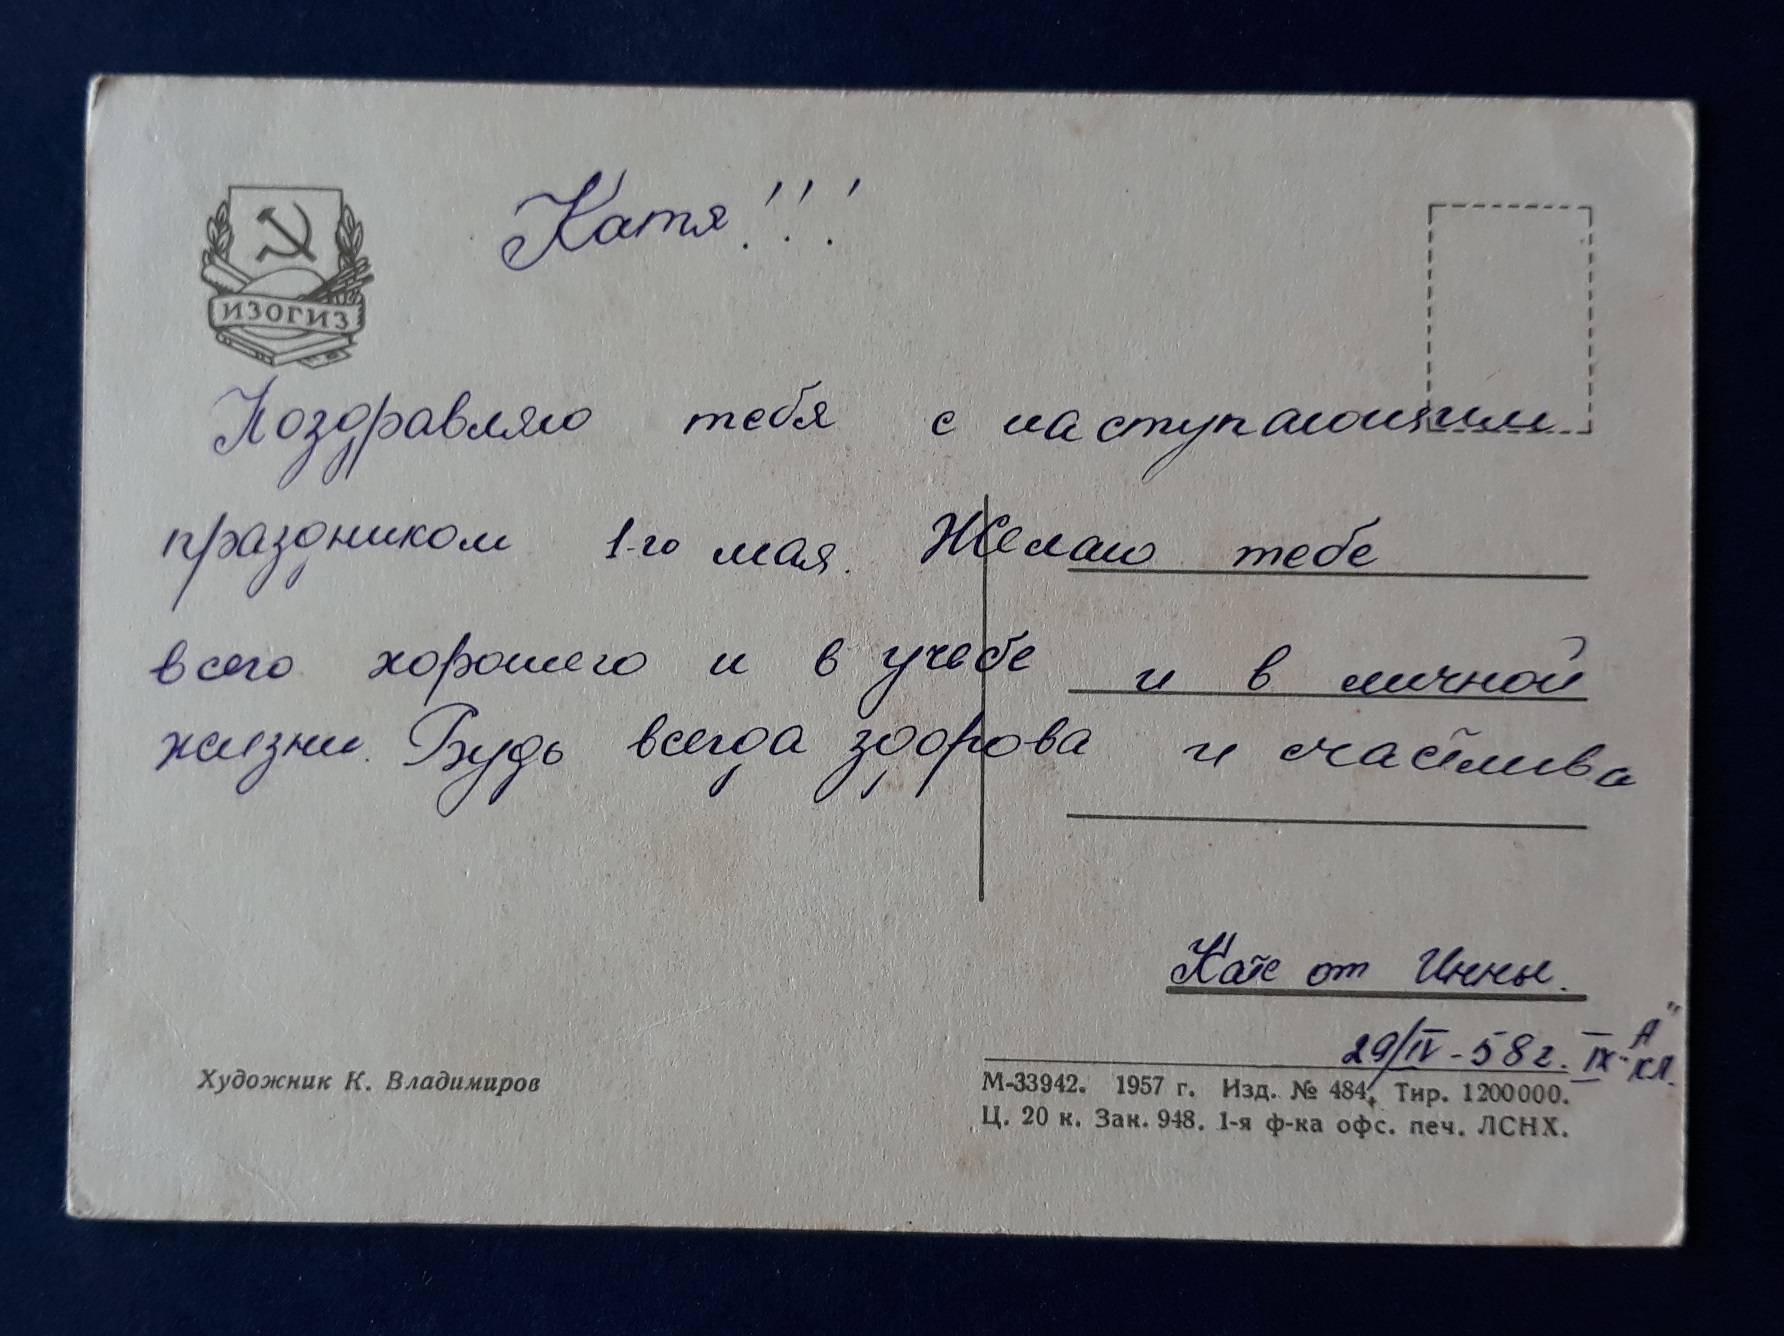 ИЗОГИЗ
Катя!!!
Поздравляю тебя с наступающим
праздником 1-го мая. Желаю тебе
всего хорошего и в учебе и в личной
жизни. Будь всегда здорова и счастлива
Кате от Инны.
29/IV-58г. IX-"А" кл.
Художник К. Владимиров
М-33942. 1957 г. Изд. № 484, Тир. 1200000.
Ц. 20 к. Зак. 948. 1-я ф-ка офс. печ. ЛСНХ.